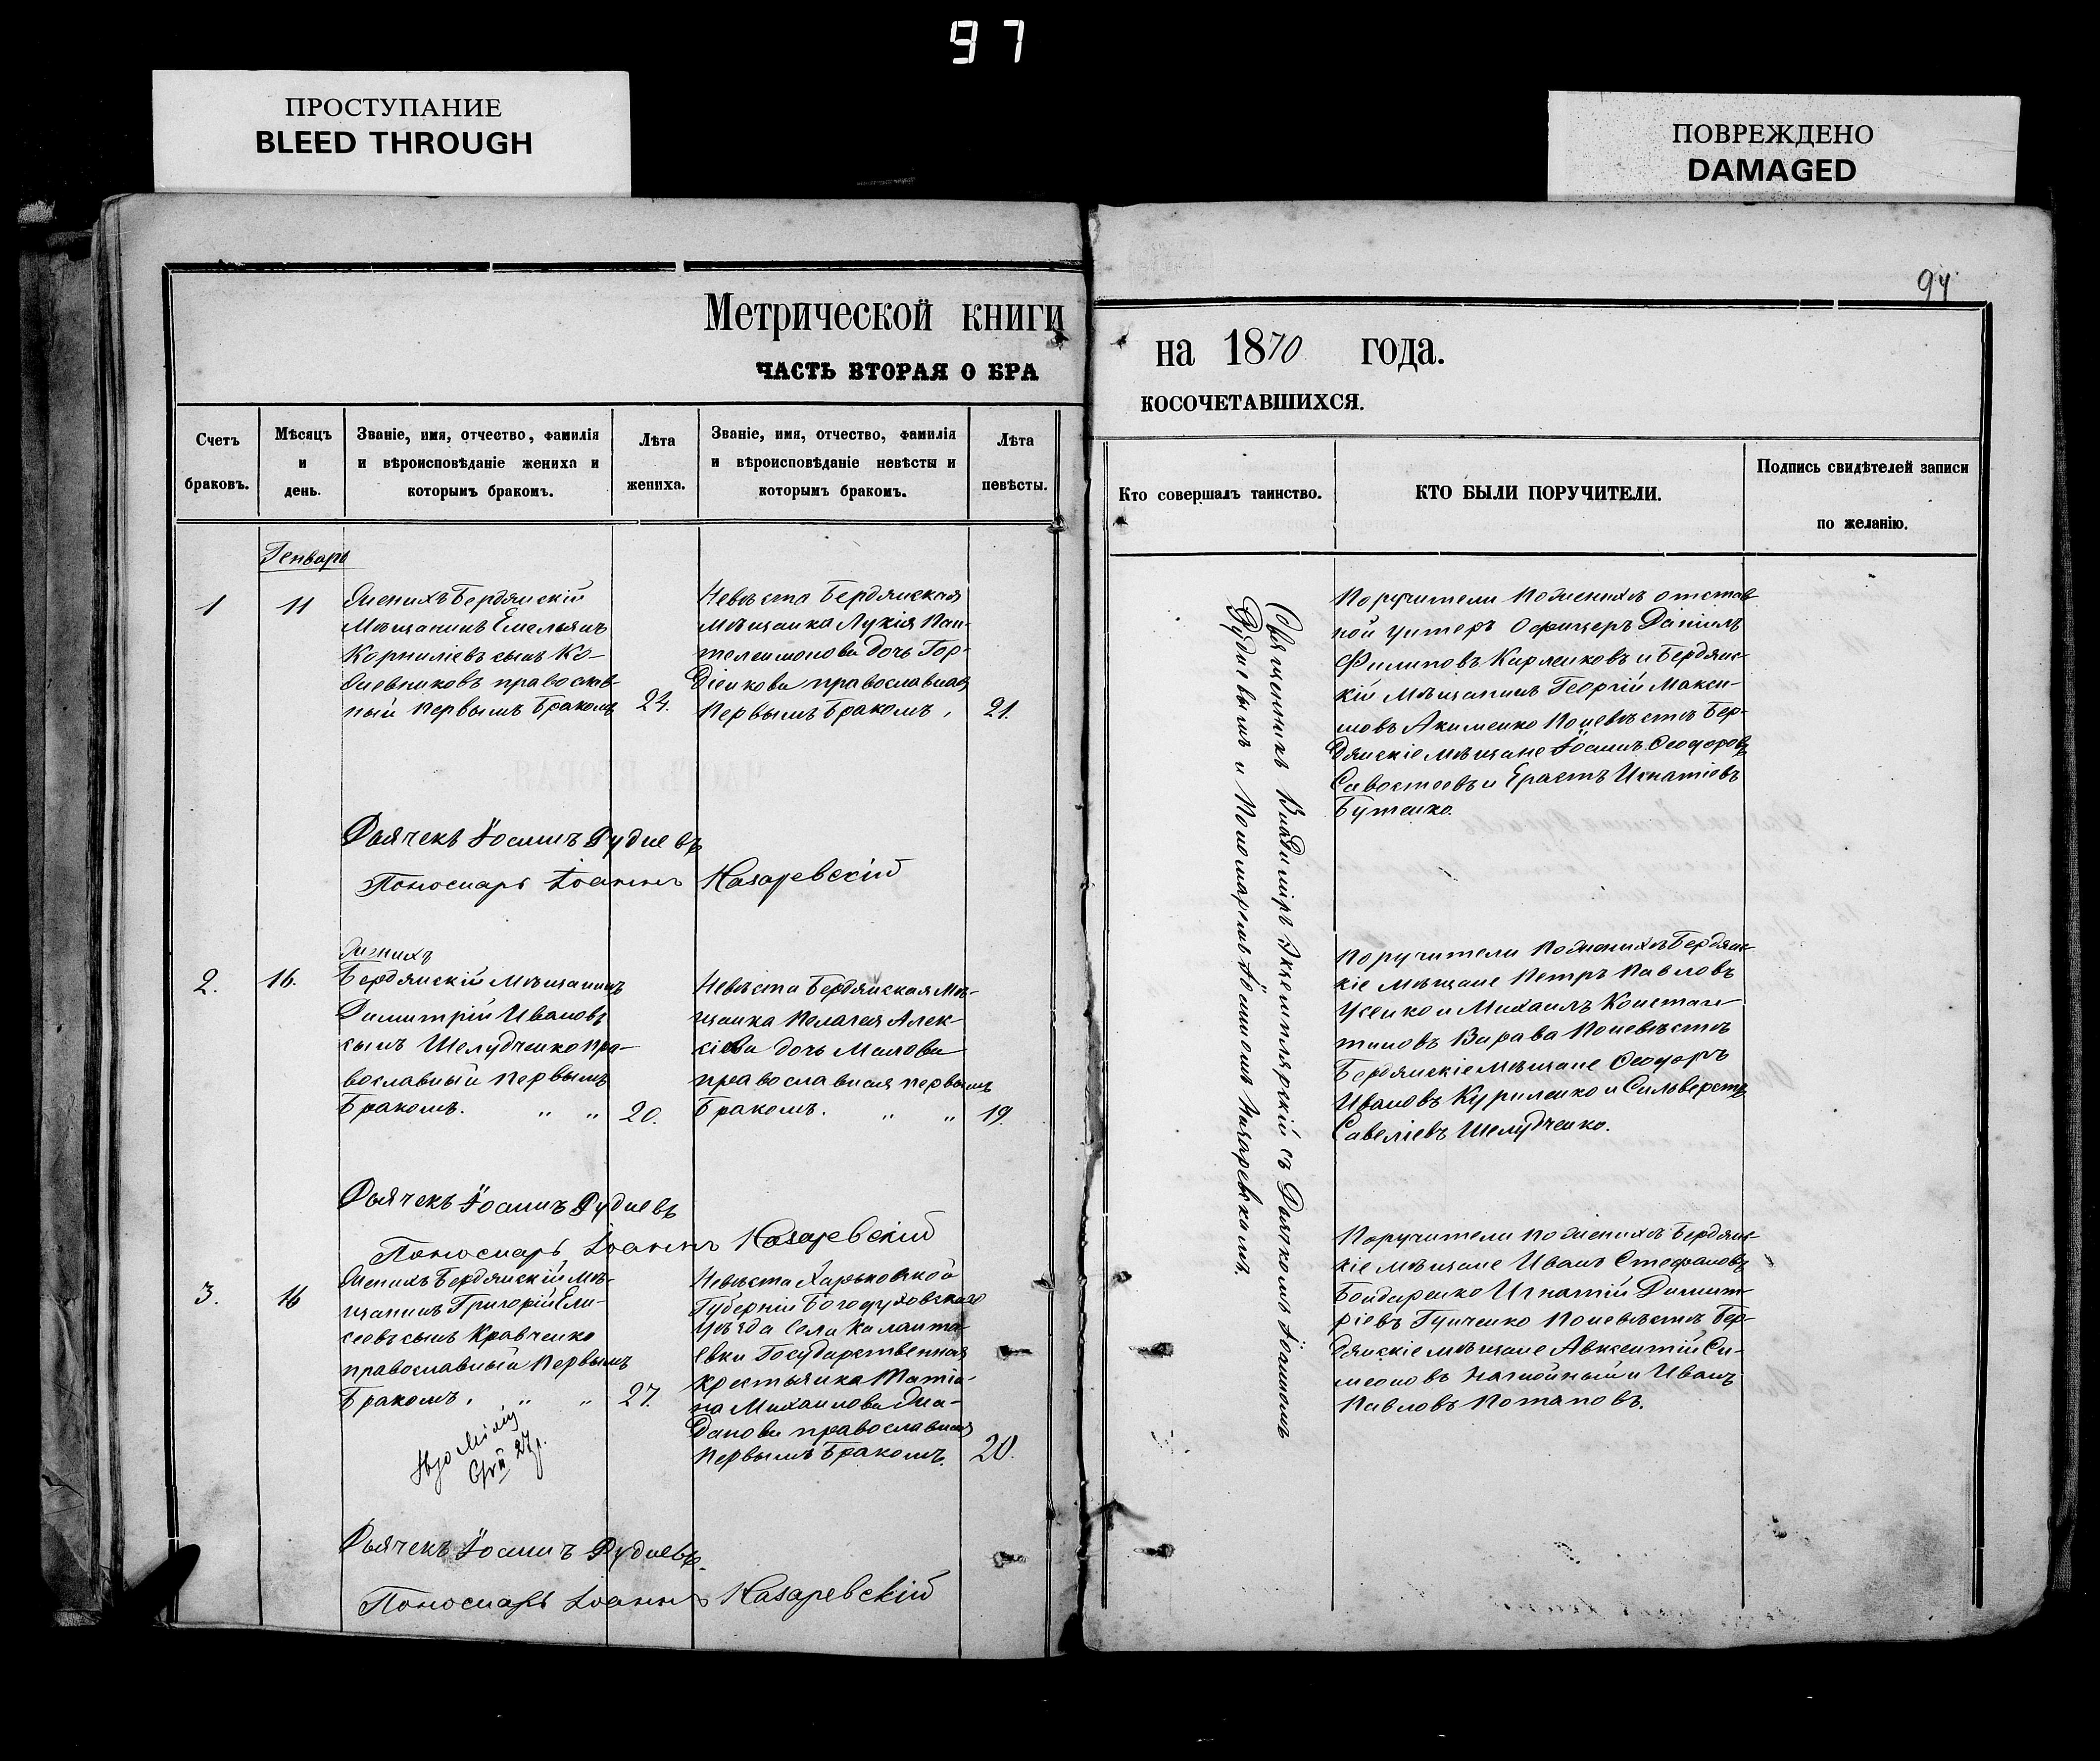 97
ПРОСТУПАНИЕ
BLEED THROUGH
ПОВРЕЖДЕНО
DAMAGED
94
Метрической книги
на 1870 года.
ЧАСТЬ ВТОРАЯ О БРА
КОСОЧЕТАВШИХСЯ.
Счетъ
браковъ.
Мѣсяцъ
и
день.
Званіе, имя, отчество, фамилія
и вѣроисповѣданіе жениха и
которымъ бракомъ.
Лѣта
жениха.
Званіе, имя, отчество, фамилія
и вѣроисповѣданіе невѣсты и
которымъ бракомъ.
Лѣта
невѣсты.
Кто совершалъ таинство.
КТО БЫЛИ ПОРУЧИТЕЛИ.
Подпись свидѣтелей записи
по желанію.
Генварь
1
11
Женихъ Бердянскій
Мѣщанинъ Емельянъ
Корниліевъ сынъ Ко-
жевниковъ православ-
ный первымъ Бракомъ
24.
Невѣста Бердянская
Мѣщанка Лукія Пан-
телеимонова дочь Гор-
діенкова православная
Первымъ Бракомъ,
21.
Священникъ Владиміръ Экземплярскій съ Дьячкомъ Іоанномъ
Рудневымъ и Пономаремъ Іоанномъ Назаревскимъ.
Поручители По женихѣ отстав
ной унтеръ Офицеръ Даніилъ
Филиповъ Карленковъ и Бердянс-
кій Мѣщанинъ Георгій Макси-
мовъ Акименко По невѣстѣ Бер-
дянскіе мѣщане Іоаннъ Ѳеодоровъ
Савостеевъ и Ерастъ Игнатіевъ
Бутенко.
Дьячекъ Іоаннъ Рудневъ
Пономарь Іоаннъ Назаревскій
2.
16.
Женихъ
Бердянскій Мѣщанинъ
Димитрій Ивановъ
сынъ Шелудченко пра-
вославный первымъ
Бракомъ. " "
20.
Невѣста Бердянская Мѣ-
щанка Пелагея Алек-
сіева дочь Малова
православная первымъ
Бракомъ. " "
19.
Поручители По женихѣ Бердянс-
кіе мѣщане Петръ Павловъ
Усенко и Михаилъ Констан-
тиновъ Варава По невѣстѣ
Бердянскіе мѣщане Ѳеодоръ
Ивановъ Куриленко и Сильверстъ
Савеліевъ Шелудченко.
Дьячекъ Іоаннъ Рудневъ
Пономарь Іоаннъ Назаревскій
3.
16
Женихъ Бердянскій Мѣ-
щанинъ Григорій Ели-
сеевъ сынъ Кравченко
православный Первымъ
Бракомъ, " "
27.
27
Невѣста Харьковской
Губерніи Богодуховскаго
Уѣзда Села Каланта-
евки Государственная
крестьянка Татіа-
на Михаилова Жда-
нова православная
первымъ Бракомъ.
20.
Поручители по женихѣ Бердянс-
кіе мѣщане Иванъ Стефановъ
Бондаренко Игнатій Димит-
ріевъ Гунченко По невѣстѣ Бер-
дянскіе мѣщане Авксентій Си-
меоновъ Нагнойный и Иванъ
Павловъ Потаповъ.
Дьячекъ Іоаннъ Рудневъ.
Пономарь Іоаннъ Назаревскій